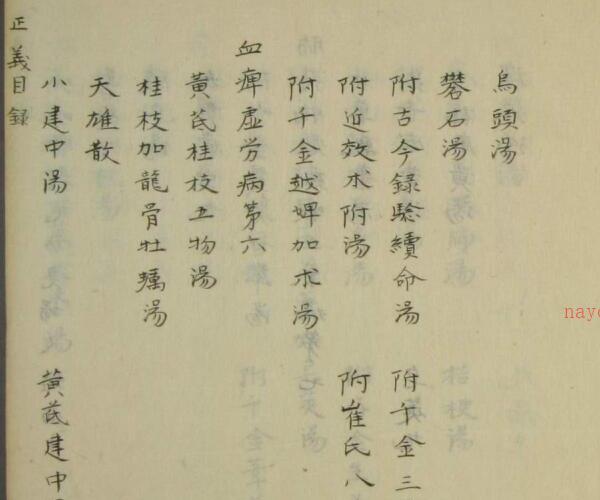 烏頭湯
礬石湯
附古今錄驗續命湯 附千金三
附近效朮附湯 附崔氏八
附千金越婢加朮湯
血痺虛労病第六
黃芪桂枝五物湯
桂枝加龍骨牡蠣湯
天雄散
小建中湯 黃芪建中
正義目錄
nayo